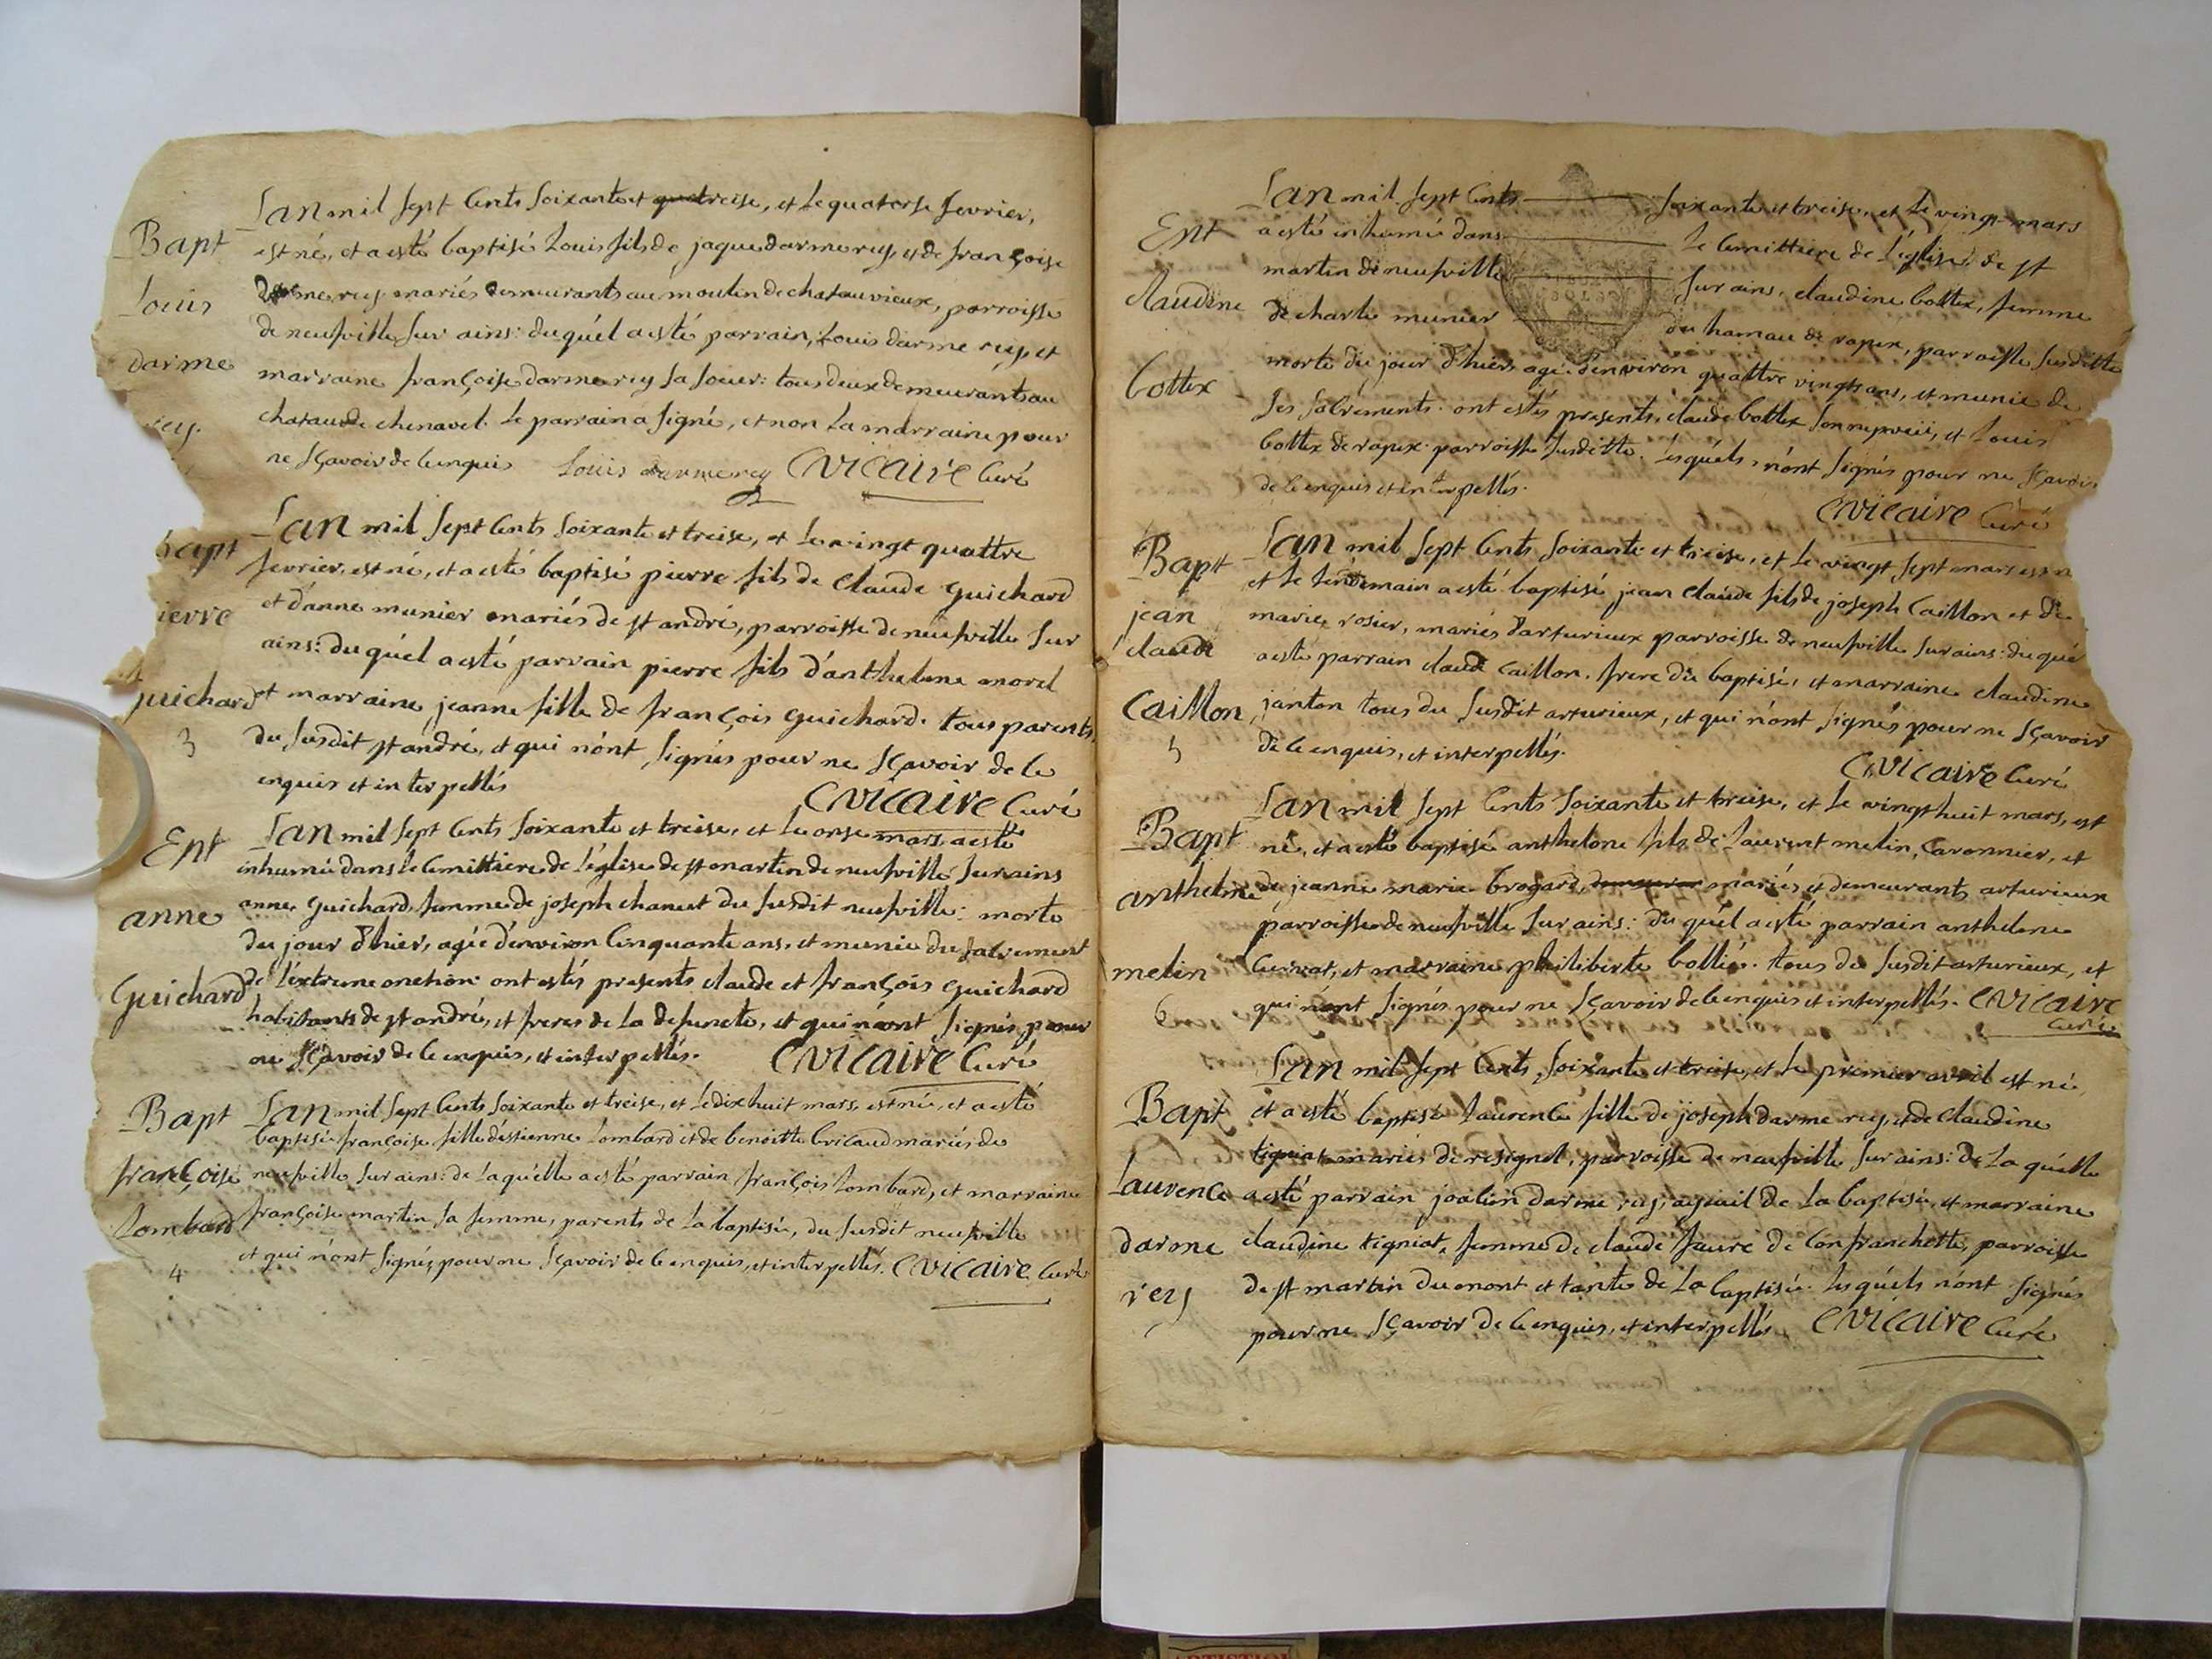 Bapt
Louis
darme
rey.
Lan mil sept cents soixante et treise, et le quatorse fevrier,
est né, et a esté baptisé Louis fils de jaque darmerey, et de françoise
darmerey mariés demeurants au moulin de chatauvieux, parroisse
de neufville sur ains: du quél a esté parrain, Louis darme rey, et
marraine françoise darmerey sa soeur: tous deux demeurants au
chatau de chenavel. Le parrain a signé, et non la marraine pour
ne sçavoir de ce enquis Louis darmerey CVicaire Curé
bapt
ierre
guichard
3
Lan mil sept cents soixante et treise, et le vingt quattre
fevrier, est né, et a esté baptisé pierre fils de Claude guichard
et d'anne munier mariés de st andré, parroisse de neufville sur
ains: du quél a esté parrain pierre fils d'anthelme morel
et marraine jeanne fille de françois guichard. tous parents,
du susdit st andré, et qui n'ont signés pour ne sçavoir de ce
enquis et interpellés
CVicaire Curé
Ent
anne
Guichard
Lan mil sept cents soixante et treise, et le onse mars, a esté
inhumé dans le cemittiere de l'église de st martin de neufville sur ains
anne Guichard femme de joseph chanut du susdit neufville: morte
du jour d'hier, agée d'environ cinquante ans, et munie du sacrement
de l'extreme onction: ont estés presents claude et françois guichard
habitants de st andré, et freres de la defuncte, et qui n'ont signés pour
ne sçavoir de ce enquis, et interpellés. CVicaire Curé
Bapt
françoise
Lombard
4
Lan mil sept cents soixante et treise, et le dix huit mars, est né, et a esté
baptisé françoise fille d'estienne Lombard et de benoitte bricaud mariés de
neufville sur ains: de laquélle a esté parrain françois Lombard, et marraine
françoise martin sa femme, parents de la baptisée, du susdit neufville
et qui n'ont signés, pour ne sçavoir de ce enquis, et interpellés. CVicaire Curé
Ent
claudine
bottex
Lan mil sept cents soixante et treise, et le vingt mars
a esté inhumé dans le cemittiere de l'église de st
martin de neufville sur ains, claudine bottex, femme
de charle munier du hamau de rapex, parroisse susditte
morte du jour d'hier, agé d'environ quattre vingts ans, et munie de
ses sacrements. ont estés presents, claude bottex son nepveü, et Louis
bottex de rapex parroisse susditte. lesquéls, n'ont signés pour ne sçavoir
de ce enquis et interpellés.
CVicaire Curé
Bapt
jean
claude
Caillon
5
Lan mil sept cents soixante et treise, et le vingt sept mars est n
et le lendemain a esté baptisé jean claude fils de joseph Caillon et de
marie rosier, mariés d'arturieux parroisse de neufville sur ains: du qué
a esté parrain claude caillon, frere du baptisé, et marraine claudine
janton tous du susdit arturieux, et qui n'ont signés pour ne sçavoir
de ce enquis, et interpellés.
CVicaire Curé
Bapt
anthelme
melin
6
Lan mil sept cents soixante et treise, et le vingt huit mars, est
né, et a esté baptisé anthelme fils de laurent melin, savonnier, et
de jeanne marie brogard, mariés et demeurants arturieux
parroisse de neufville sur ains: du quél a esté parrain anthelme
curvat, et marraine philiberte bollié. tous du susdit arturieux, et
qui n'ont signés pour ne sçavoir de ce enquis et interpellés. CVicaire
Curé
Bapt
Laurence
darme
rey
Lan mil sept cents, soixante et treise, et le premier avril est né
et a esté baptisé Laurence fille de joseph darme rey, et de claudine
tigniat mariés de resignel, parroisse de neufville sur ains: de la quélle
a esté parrain joachin darme rey, ayeuil de la baptisé, et marraine
claudine tigniat, femme de claude faure de Confranchette, parroisse
de st martin du mont et tante de la baptisé. lesquéls n'ont signés
pour ne sçavoir de ce enquis, et interpellés. CVicaire Curé